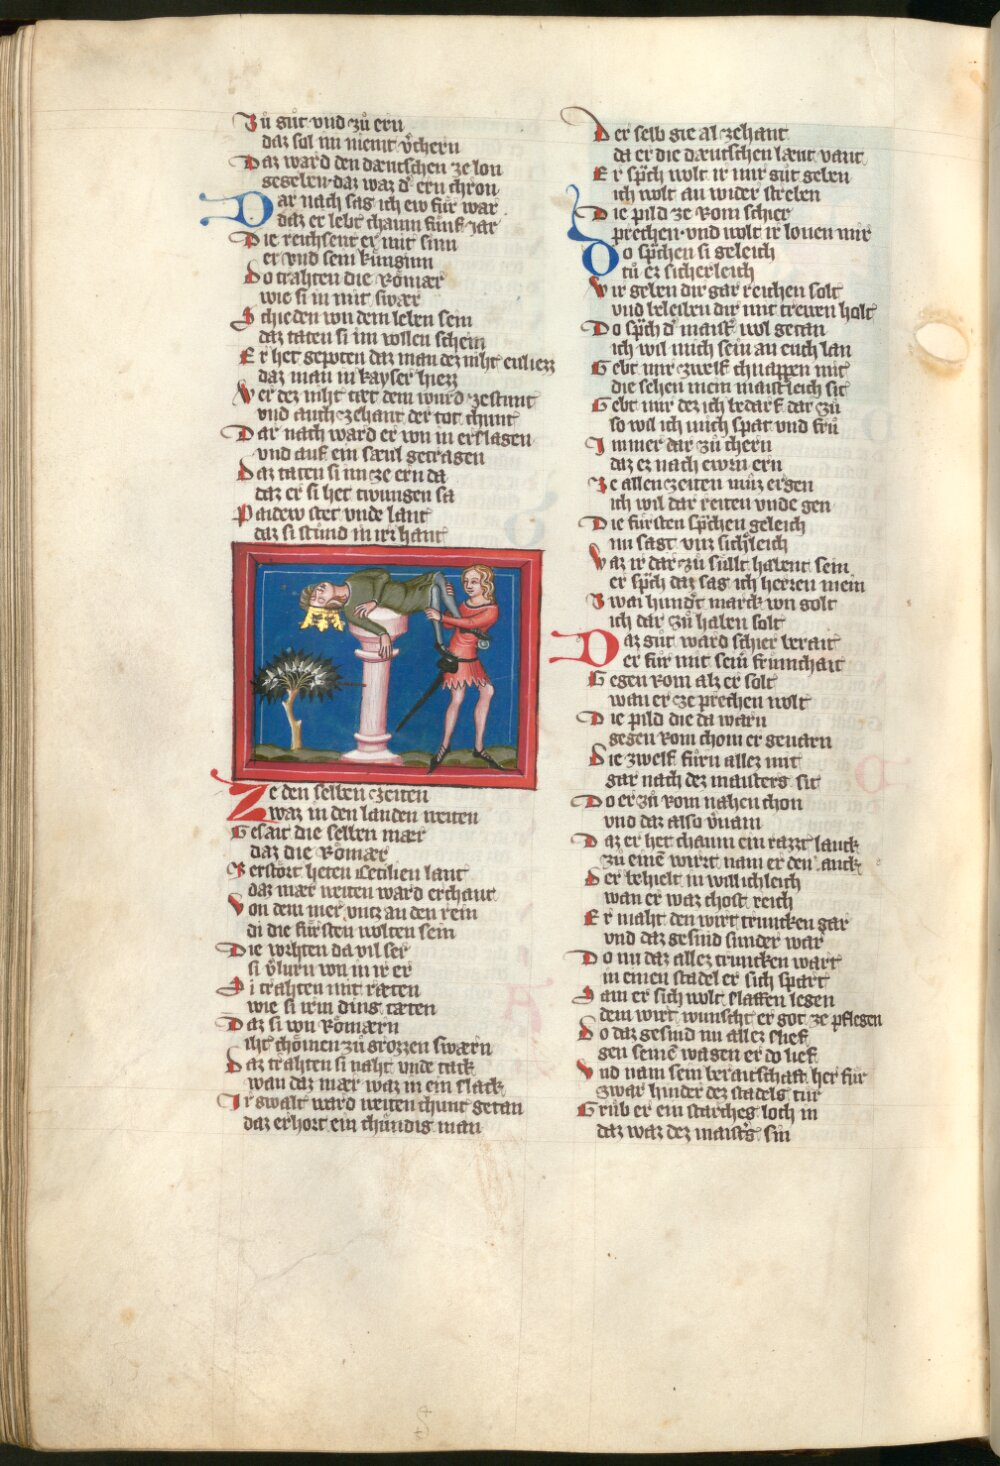 Zů gůt vnd zů ern
daz sol nu niemt v̊chern
Daz ward den dæutschen ze lon
gegeben daz waz d' ern chron
Dar nach sag ich ew fúr war
daz er lebt chaum fúnf iar
Die reichsent er mit sinn
er vnd sein kúnginn
Do trahten die Römær
wie si in mit swær
Schieden von dem leben sein
daz taten si im wollen schein
Er het gepoten daz man dez niht enliezz
daz man in kayser hiezz
Wer dez niht tæt dem wurd ze stunt
vnd auch zehant der tot chunt
Dar nach ward er von in erslagen
vnd auf ein sæul getragen
Daz taten si im ze ern da
daz er si het twungen sa
Paidew stet vnde lant
daz si stůnd in irr hant
Ze den selben zeiten
zwaz in den landen weiten
Gesait die selben mær
daz die Römær
Zerstört heten Cecilien lant
daz mær weiten ward erchant
Von dem mer vntz an den rein
di die fúrsten wolten sein
Die vorhten da vil ser
si v'lurn von in ir er
Si trahten mit ræten
wie si irm ding tæten
Daz si von Römærn
iht chömen zů grozzen swærn
Daz trahten si naht vnde tack
wan daz mær waz in ein slack
Ir gwalt ward weiten chunt getan
daz erhort ein chúndig man
Der selb gie al zehant
da er die dæutschen lænt vant
Er sp̄ch wolt ir mir gůt geben
ich wolt an wider streben
Die pild ze Rom schier
prechen vnd wolt ir lonen mir
Do sp̄chen si geleich
tů ez sicherleich
Wir geben dir gar reichen solt
vnd beleiben dir mit trewen holt
Do sp̄ch d' maist' wol getan
ich wil mich sein an euch lan
Gebt mir zwelf chnappen mit
die sehen mein maist'leich sit
Gebt mir dez ich bedarf dar zů
so wil ich mich spat vnd frů
Immer dar zů chern
daz ez nach ewrn ern
Ze allen zeiten můz ergen
ich wil dar reiten vnde gen
Die fúrsten sp̄chen geleich
nu sagt vnz sich'leich
Waz ir dar zů súllt habent sein
er sp̄ch daz sag ich herren mein
Zwai hund't marck von golt
ich dar zů haben solt
Daz gůt ward schier berait
er fůr mit sein' frúmchait
Gegen Rom alz er solt
wan er ze prechen wolt
Die pild die da warn
gegen Rom chom er geuarn
Die zwelf fůrn allez mit
gar nach dez maisters sit
Do er zů Rom nahen chon
vnd daz also v'nam
Daz er het chaum ein razzt lanck
zů einē wirt nam er den anck
Der behielt in willichleich
wan er waz chost reich
Er maht den wirt truncken gar
vnd daz gesind sunder war
Do nu daz allez truncken wart
in einen stadel er sich spart
Sam er sich wolt slaffen legen
dem wirt wunscht er got ze pflegen
Do daz gesind nu allez slief
gen seinē wagen er do lief
Vnd nam sein beraitschaft her fúr
zwar hinder dez stadels túr
Grůb er ein starches loch in
daz waz dez maist's sin